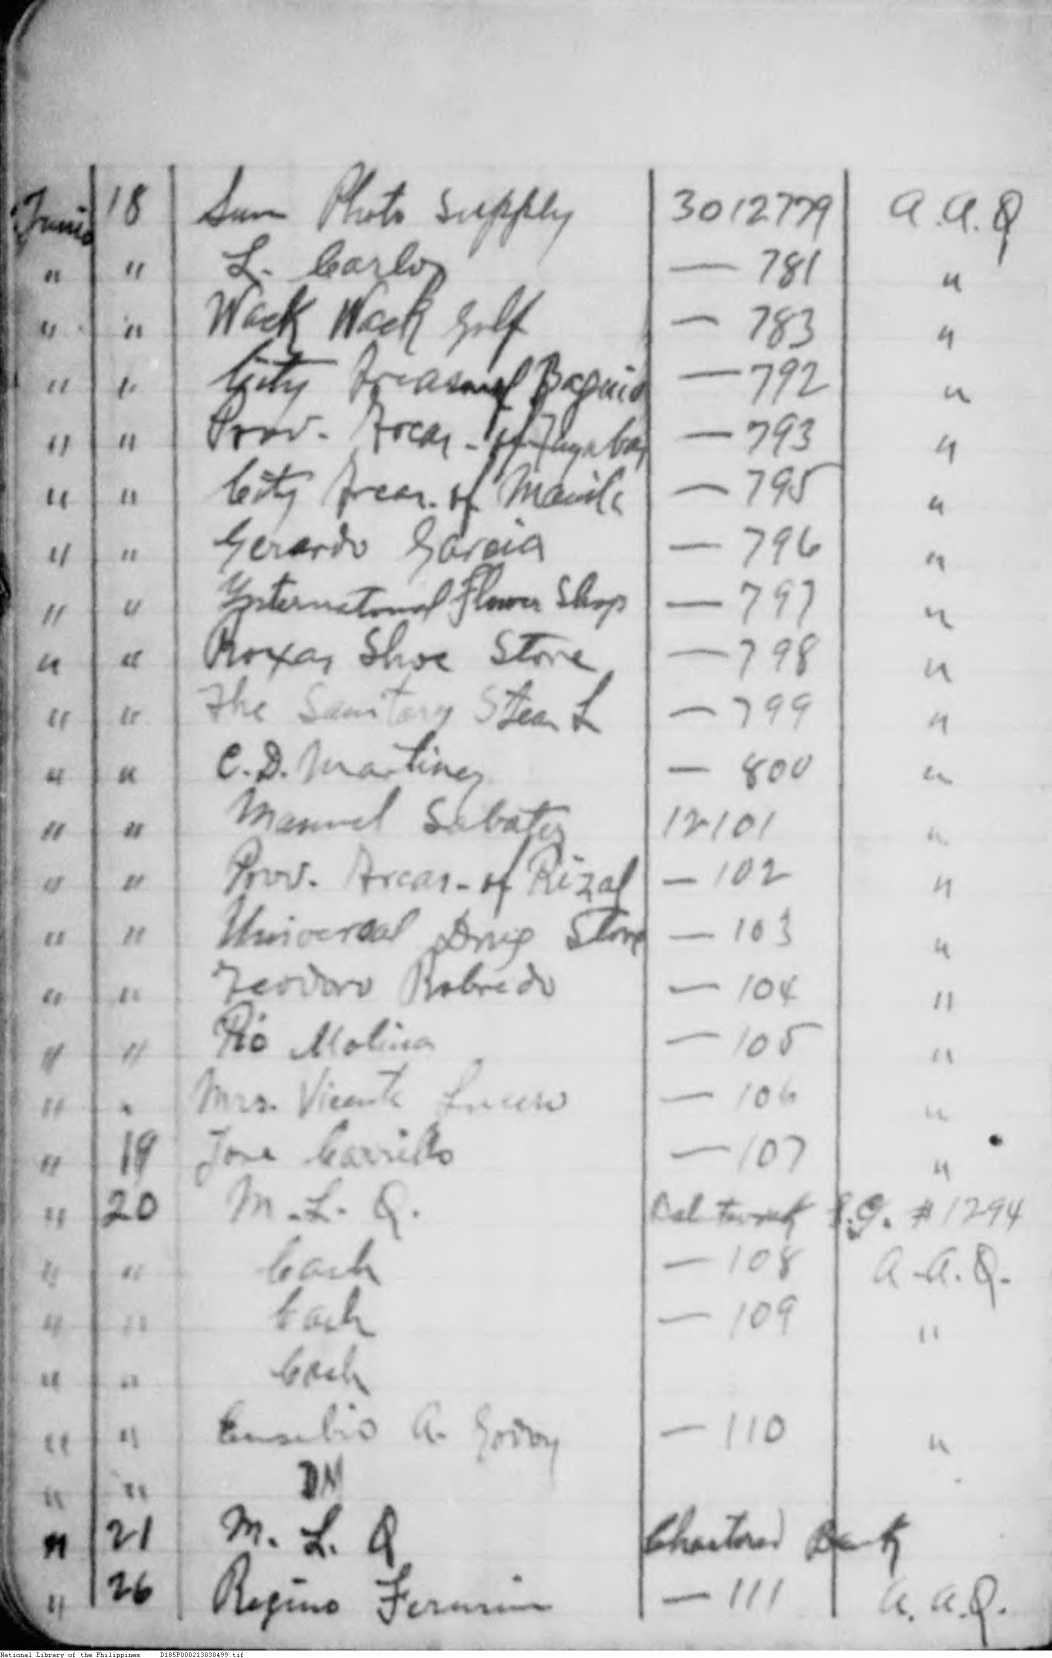 Junio 18 Sun Photo Supply 3012779 A.A.Q
" " L. Carlos — 781 "
" " Wack Wack Golf — 783 "
" " City Treasurer of Baguio — 792 "
" " Prov. Treas. of Tayabas — 793 "
" " City Treas. of Manila — 795 "
" " Gerardo Garcia — 796 "
" " International Flower Shop — 797 "
" " Roxas Shoe Store — 798 "
" " The Sanitary Steam L — 799 "
" " C.D. Martinez — 800 "
" " Manuel Sabater 12101 "
" " Prov. Treas. of Rizal — 102 "
" " Universal Drug Store — 103 "
" " Teodoro Robredo — 104 "
" " Pio Molina — 105 "
" " Mrs. Vicente Lucero — 106 "
" 19 Jose Carrillo — 107 "
" 20 M.L.Q. #1294
" " Cash — 108 A.A.Q.
" " Cash — 109 "
" " Cash
" " Eusebio A. Godoy — 110 "
" " DN
" 21 M.L.Q Chartered Bank
" 26 Regino — 111 A.A.Q.
National Library of the Philippines D185P000213838499.tif